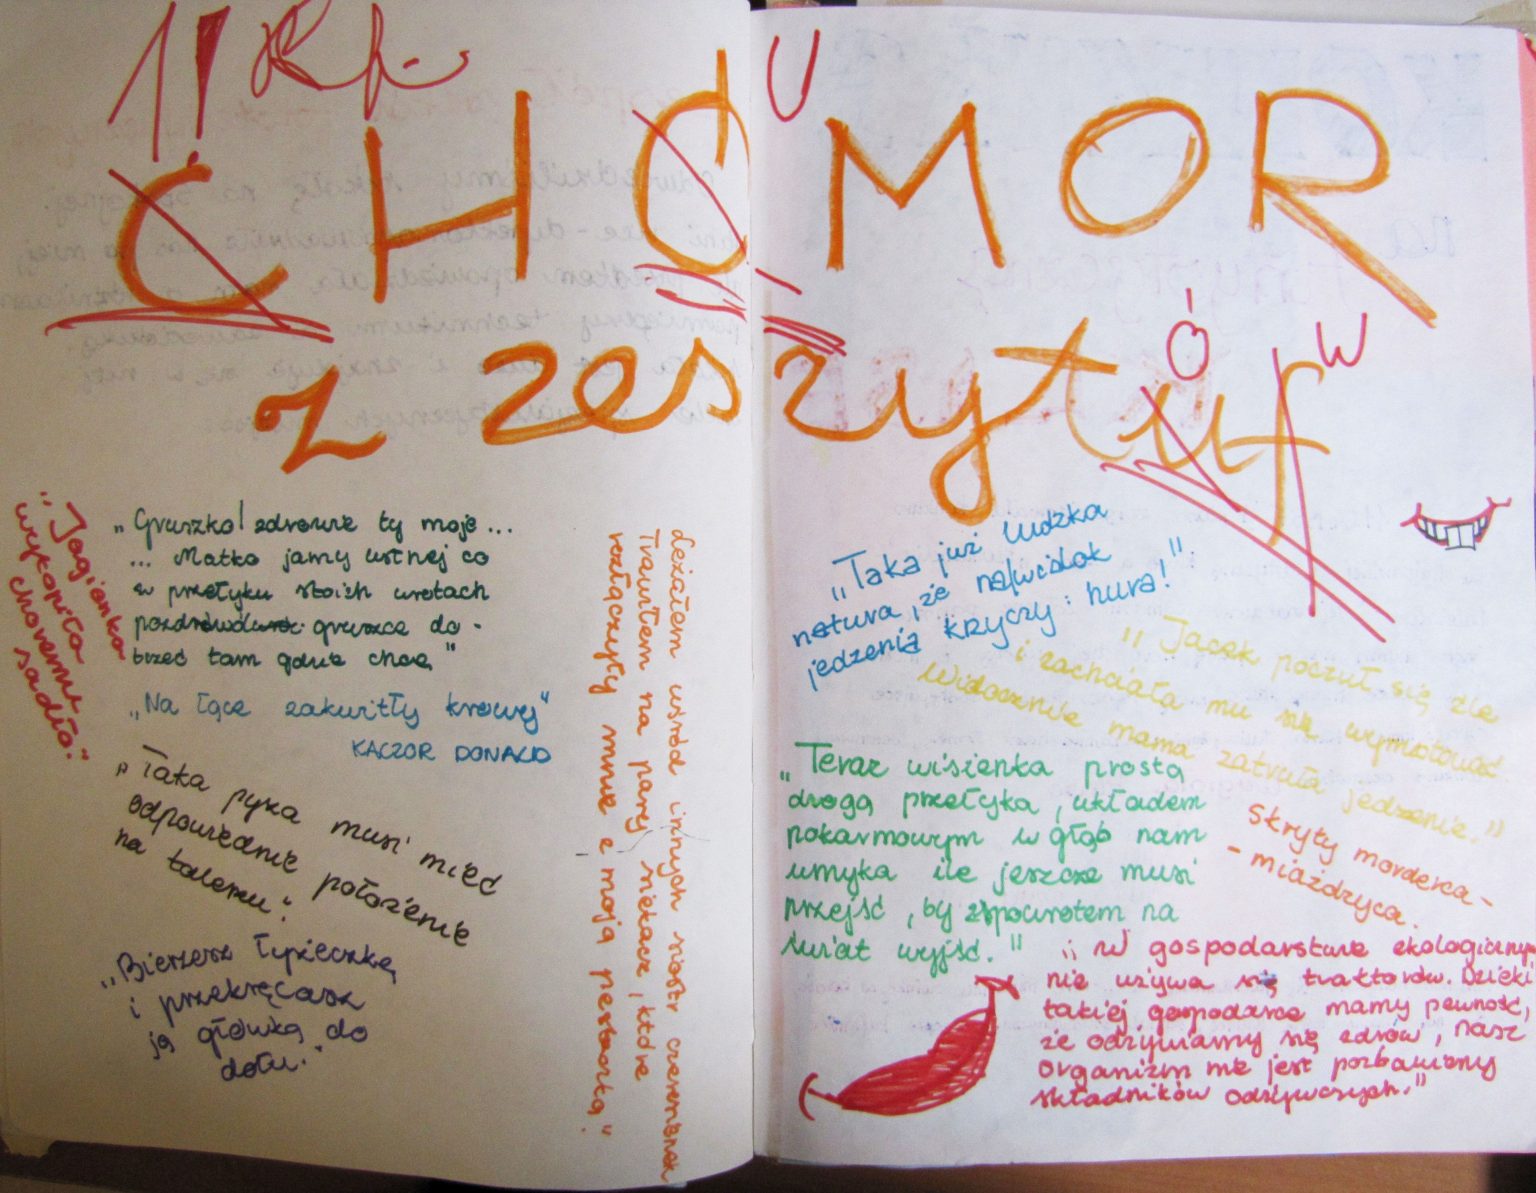 1! Rk.
ĆHÓMOR
U
z zeszytuf
ó w
„Jagienka
wykopiła
choremu
sadło."
„Gruszko! zdrowie ty moje...
... Matko jamy ustnej co
w przełyku stoisz wrotach
pozdrówdwsz gruszce do-
brzeć tam gdzie chcę"
„Na łące zakwitły krowy"
KACZOR DONALD
„Taka pyza musi mieć
odpowiednie położenie
na talerzu".
„Bierzesz łyżeczkę
i przekręcasz
ją główką do
dołu."
„Leżałem wśród innych sióstr czereśienek
Trawiłem na parę siekacz, które
rozłączyły mnie z moją pestką."
„Taka już ludzka
natura, że na widok
jedzenia krzyczy: hura!"
„Jacek poczuł się źle
i zachciała mu się wymiotować
Widocznie mama zatruła jedzenie."
„Teraz wisienka prostą
drogą przełyka, układem
pokarmowym w głąb nam
umyka ile jeszcze musi
przejść, by zpowrotem na
świat wyjść."
Skryty morderca-
-miażdżyca.
„W gospodarstwie ekologicznym
nie używa się traktorów. Dzięki
takiej gospodarce mamy pewność,
że odżywiamy się zdrów, nasz
organizm nie jest pozbawiony
składników odżywczych."